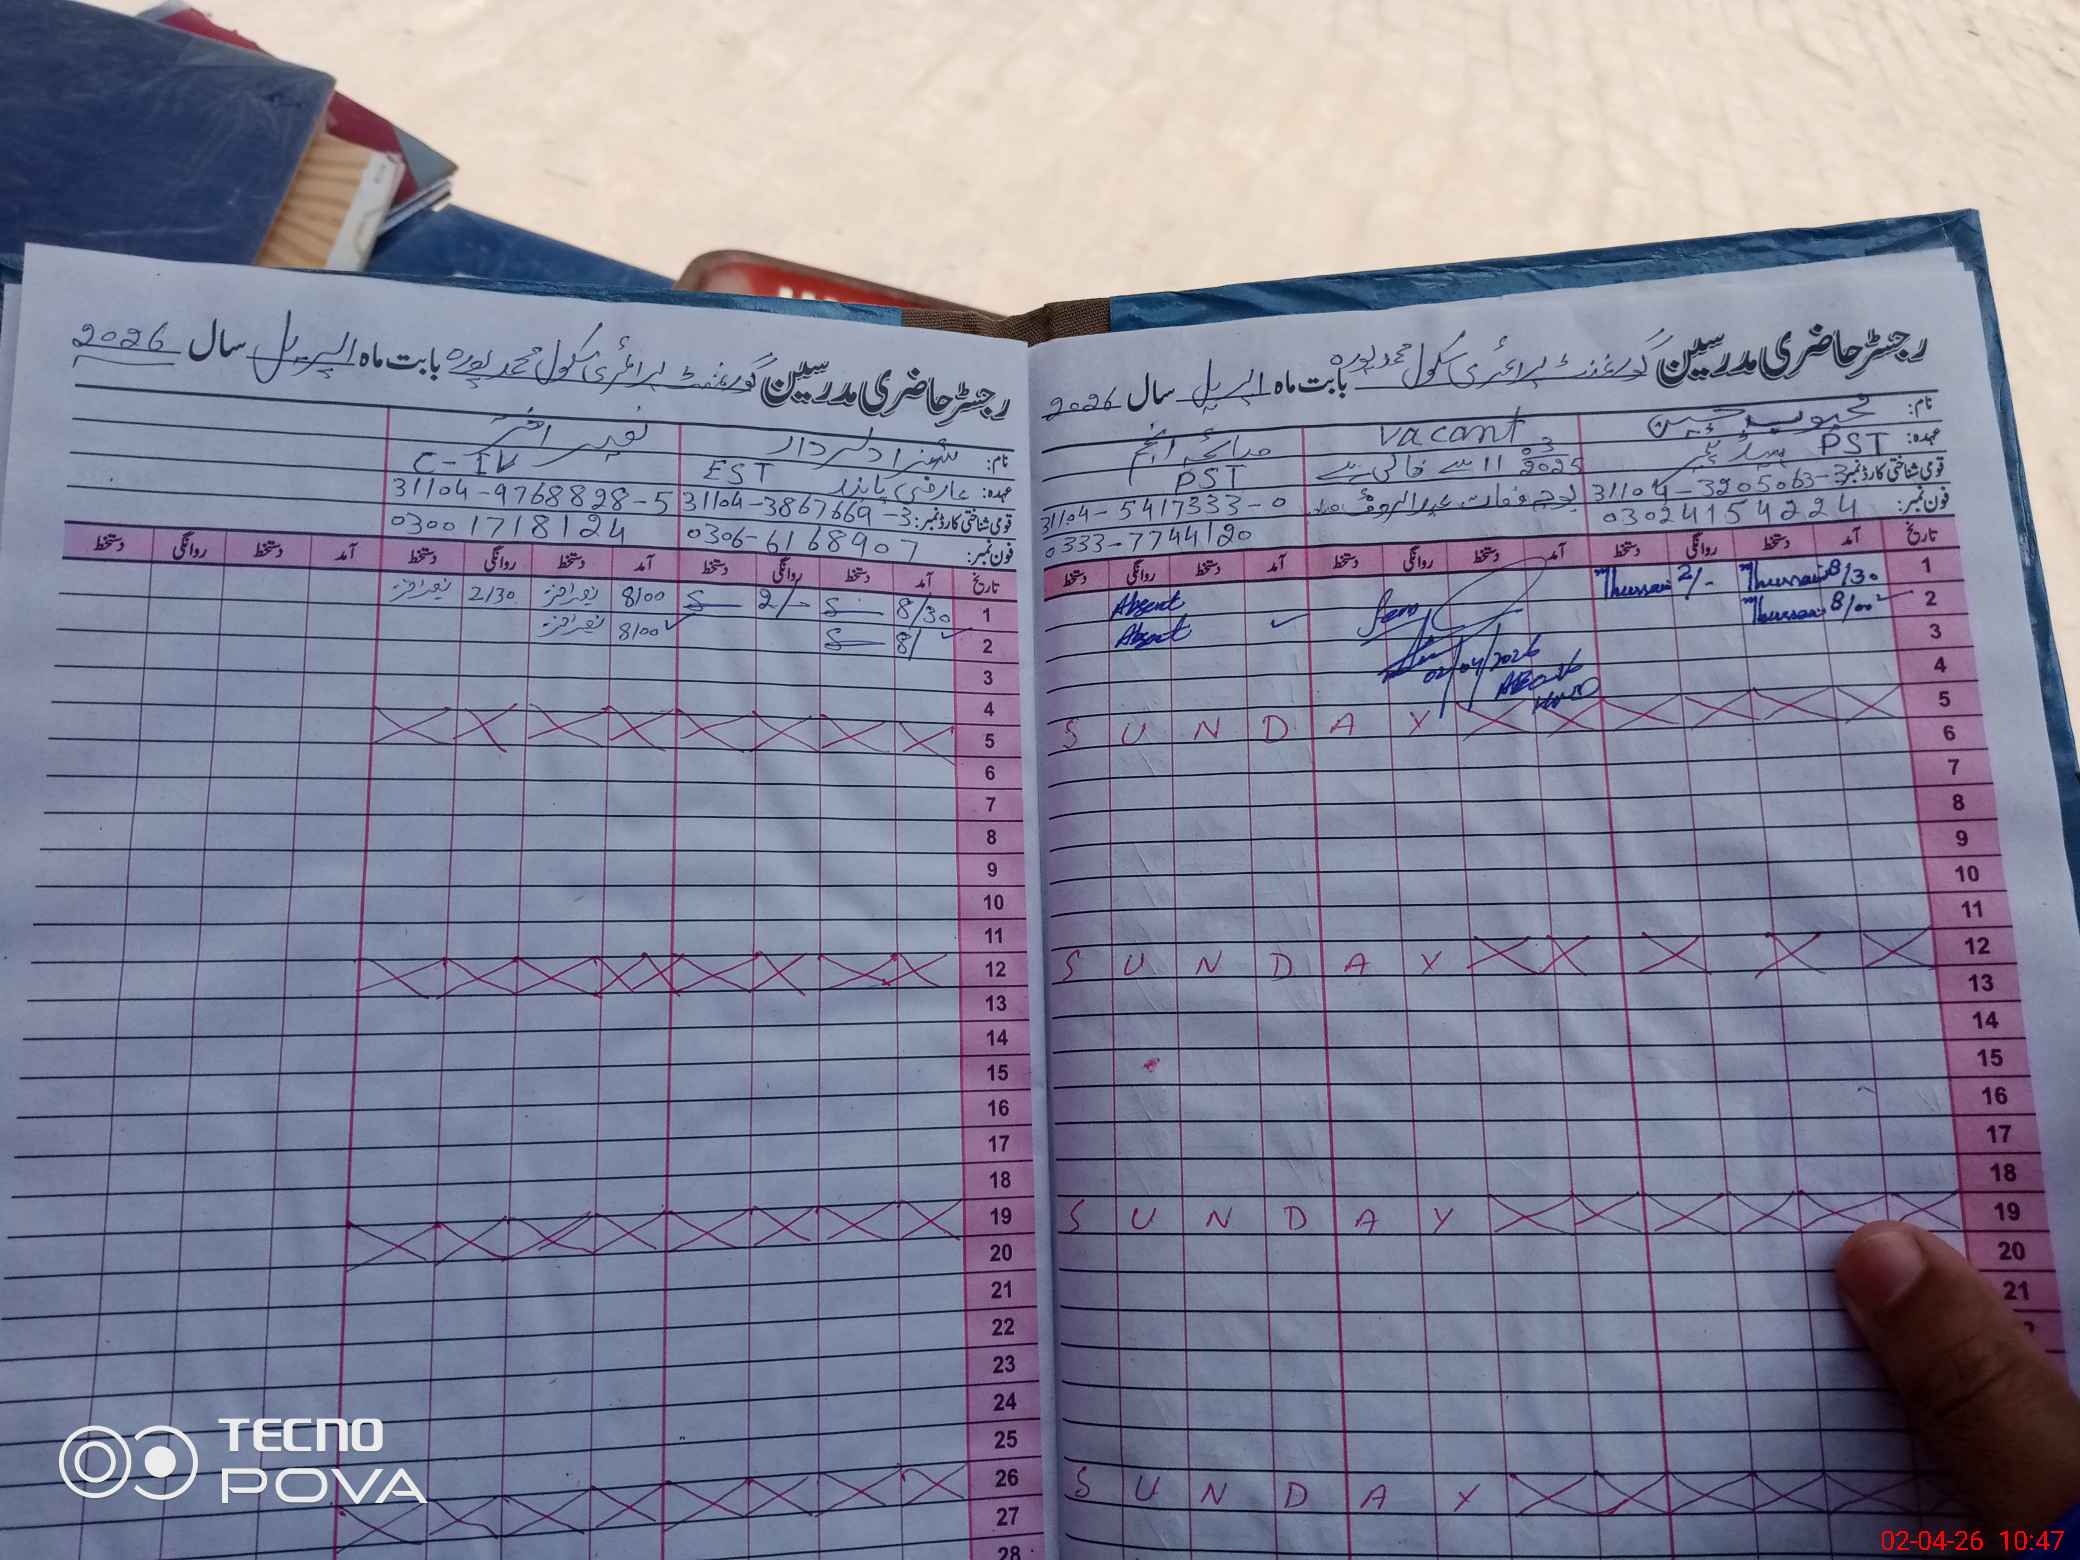 رجسٹر حاضری مدرسین گورنمنٹ پرائمری سکول محمد پورہ بابت ماہ اپریل سال 2026
نام: محبوب حسین
Vacant
صائمہ انجم
عہدہ: PST ہیڈ ٹیچر
11 03 2025 سے خالی ہے
PST
قومی شناختی کارڈ نمبر: 31104-3205063-3
بوجہ وفات عبدالرؤف
31104-5417333-0
فون نمبر: 03024154224
0333-7744120
تاریخ آمد دستخط روانگی دستخط آمد دستخط روانگی دستخط آمد دستخط روانگی دستخط
1 8/30 Mhussain 2/- Mhussain Absent
2 8/00 Mhussain Absent
02/04/2026
3
4
5 S U N D A Y
6
7
8
9
10
11
12 S U N D A Y
13
14
15
16
17
18
19 S U N D A Y
20
21
S U N D A Y
رجسٹر حاضری مدرسین گورنمنٹ پرائمری سکول محمد پورہ بابت ماہ اپریل سال 2026
نام:
عہدہ: EST
C-IV
قومی شناختی کارڈ نمبر: 31104-3867669-3 31104-9768828-5
فون نمبر: 0306-6168907 03001718124
تاریخ آمد دستخط روانگی دستخط آمد دستخط روانگی دستخط آمد دستخط روانگی دستخط
1 8/30 2/- 8/00 2/30
2 8/ 8/00
3
4
5
6
7
8
9
10
11
12
13
14
15
16
17
18
19
20
21
22
23
24
25
26
27
28
TECNO
POVA
02-04-26 10:47